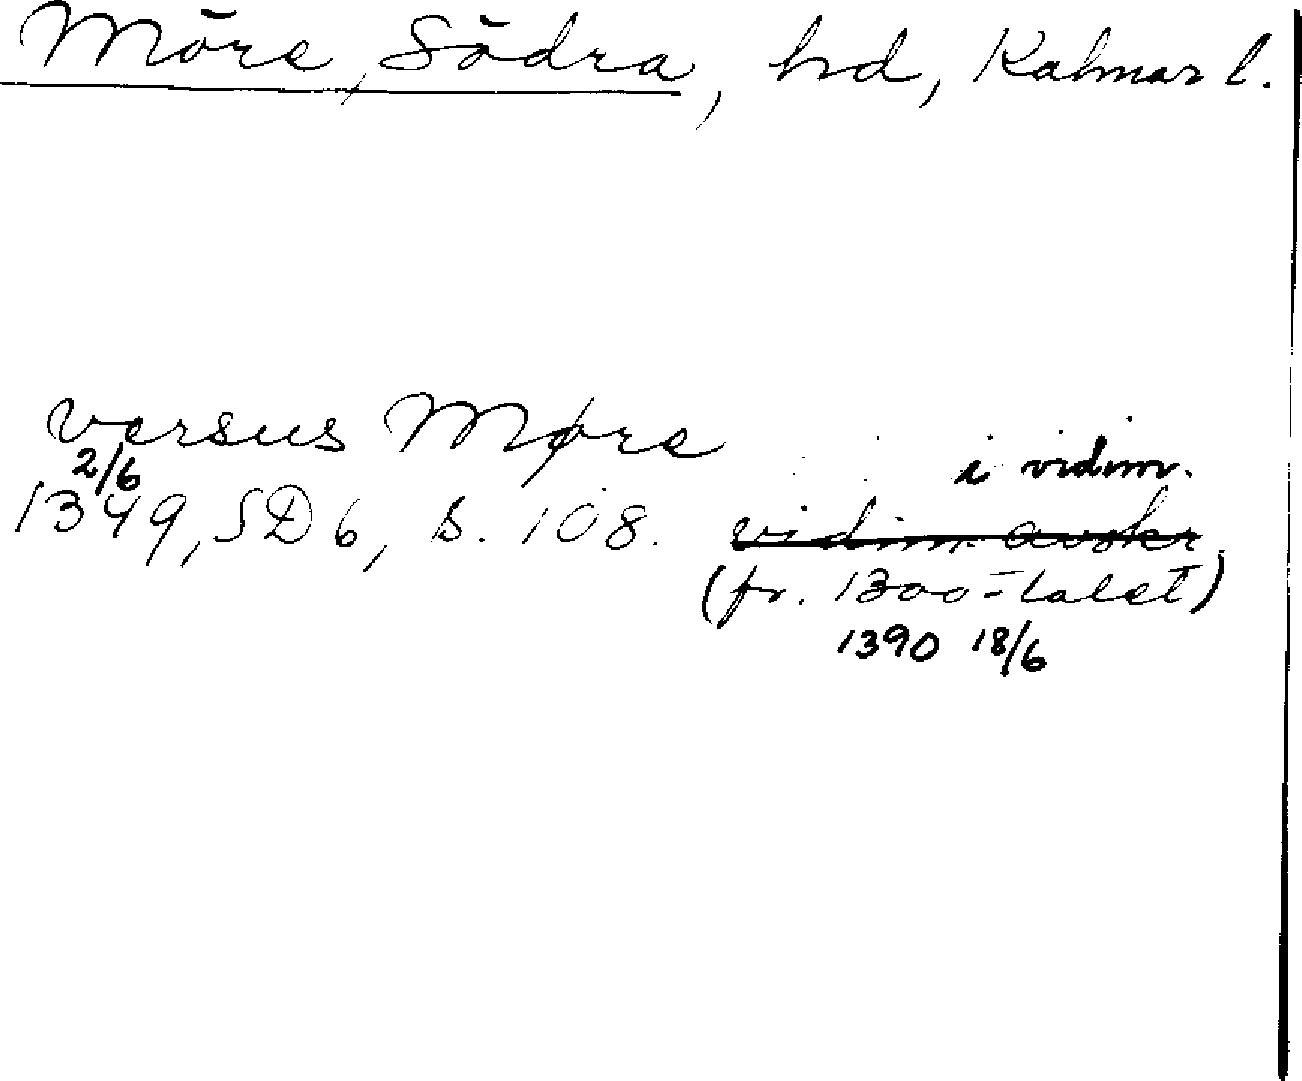 Möre, Södra, hd, Kalmar l.
versus Møre
i vidim.
2/6
1349, SD 6, s. 108. vidim. avskr.
(fr. 1300-talet)
1390 18/6